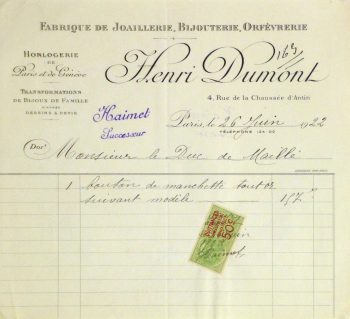 FABRIQUE DE JOAILLERIE, BIJOUTERIE, ORFÈVRERIE
HORLOGERIE
DE
Paris et de Genève
TRANSFORMATIONS
DE BIJOUX DE FAMILLE
DESSINS & DEVIS
Henri Dumont
4, Rue de la Chaussée d'Antin
Haimet
Successeur
Paris, le 26 Juin 1922
TÉLÉPHONE
Doit
Monsieur le Duc de Maillé
1 bouton de manchette tout or
suivant modèle 157 "
50c
Haimet